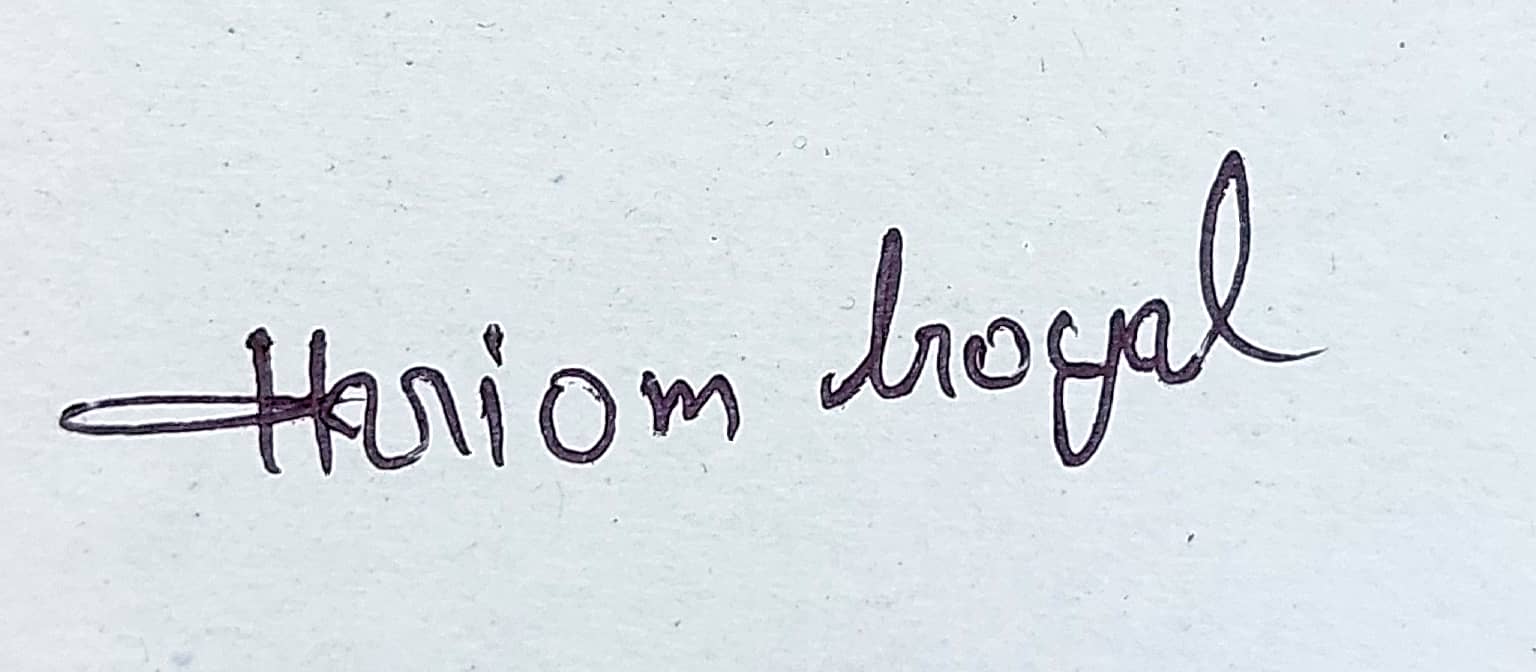 Hariom broyal